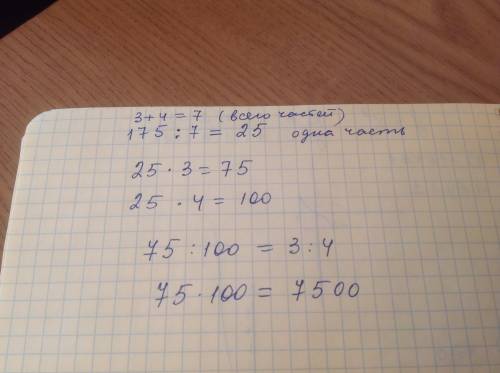 3+4=7 (всего частей)
175:7=25 одна часть
25·3=75
25·4=100
75:100=3:4
75·100=7500